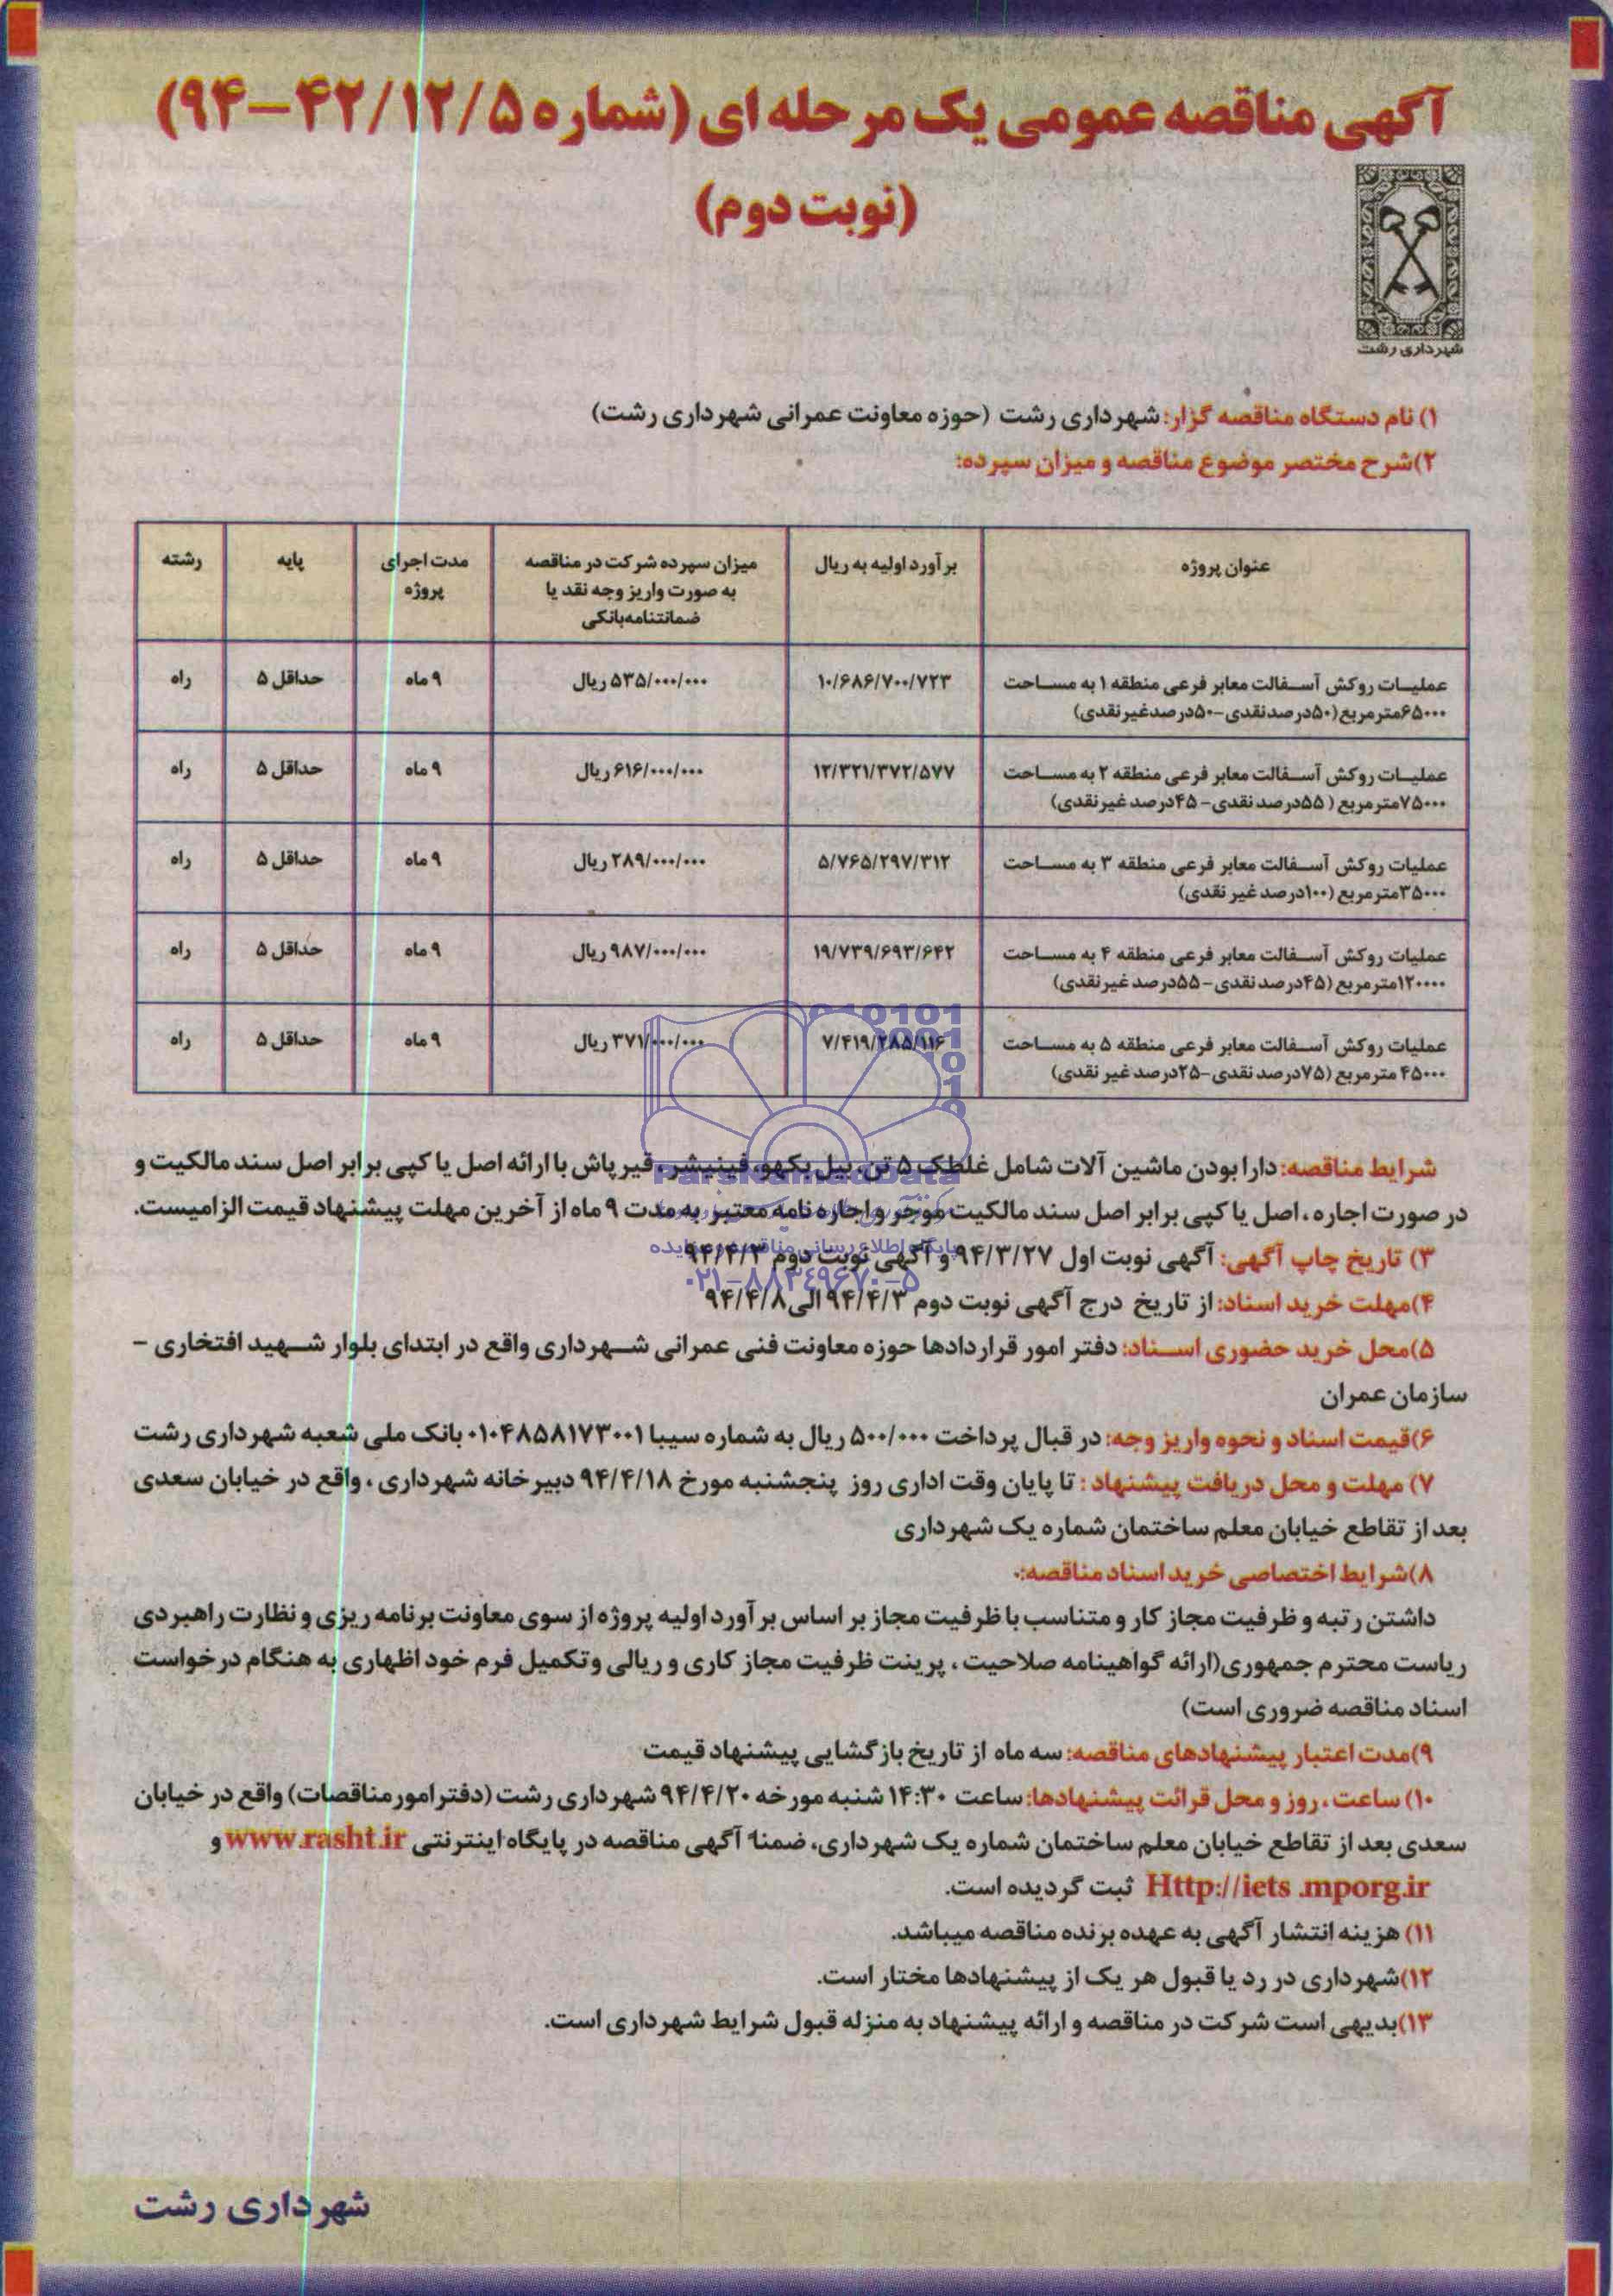 آگهی مناقصه عمومی یک مرحله ای (شماره ۹۴-۴۲/۱۲/۵)
(نوبت دوم)
شهرداری رشت
۱) نام دستگاه مناقصه گزار: شهرداری رشت (حوزه معاونت عمرانی شهرداری رشت)
۲)شرح مختصر موضوع مناقصه و میزان سپرده:
عنوان پروژه
برآورد اولیه به ریال
میزان سپرده شرکت در مناقصه
به صورت واریز وجه نقد یا
ضمانتنامه‌بانکی
مدت اجرای
پروژه
پایه
رشته
عملیات روکش آسفالت معابر فرعی منطقه ۱ به مساحت
۶۵۰۰۰مترمربع(۵۰درصدنقدی-۵۰درصدغیرنقدی)
۱۰/۶۸۶/۷۰۰/۷۲۳
۵۳۵/۰۰۰/۰۰۰ ریال
۹ ماه
حداقل ۵
راه
عملیات روکش آسفالت معابر فرعی منطقه ۲ به مساحت
۷۵۰۰۰مترمربع ( ۵۵درصد نقدی- ۴۵درصد غیرنقدی)
۱۲/۳۲۱/۳۷۲/۵۷۷
۶۱۶/۰۰۰/۰۰۰ ریال
۹ ماه
حداقل ۵
راه
عملیات روکش آسفالت معابر فرعی منطقه ۳ به مساحت
۳۵۰۰۰مترمربع (۱۰۰درصد غیر نقدی)
۵/۷۶۵/۲۹۷/۳۱۲
۲۸۹/۰۰۰/۰۰۰ ریال
۹ ماه
حداقل ۵
راه
عملیات روکش آسفالت معابر فرعی منطقه ۴ به مساحت
۱۲۰۰۰۰مترمربع (۴۵درصد نقدی- ۵۵درصد غیرنقدی)
۱۹/۷۳۹/۶۹۳/۶۴۲
۹۸۷/۰۰۰/۰۰۰ ریال
۹ ماه
حداقل ۵
راه
عملیات روکش آسفالت معابر فرعی منطقه ۵ به مساحت
۴۵۰۰۰ مترمربع (۷۵درصد نقدی-۲۵درصد غیر نقدی)
۷/۴۱۹/۲۸۵/۱۱۶
۳۷۱/۰۰۰/۰۰۰ ریال
۹ ماه
حداقل ۵
راه
شرایط مناقصه: دارا بودن ماشین آلات شامل غلطک ۵ تن، بیل بکهو، فینیشر، قیرپاش با ارائه اصل یا کپی برابر اصل سند مالکیت و
در صورت اجاره، اصل یا کپی برابر اصل سند مالکیت موجر و اجاره نامه معتبر به مدت ۹ ماه از آخرین مهلت پیشنهاد قیمت الزامیست.
ParsNamadData
پایگاه اطلاع رسانی مناقصه و مزایده
۰۲۱-۸۸۳۴۹۶۷۰-۵
۳) تاریخ چاپ آگهی: آگهی نوبت اول ۹۴/۳/۲۷ و آگهی نوبت دوم ۹۴/۴/۳
۴)مهلت خرید اسناد: از تاریخ درج آگهی نوبت دوم ۹۴/۴/۳ الی ۹۴/۴/۸
۵)محل خرید حضوری اسناد: دفتر امور قراردادها حوزه معاونت فنی عمرانی شهرداری واقع در ابتدای بلوار شهید افتخاری -
سازمان عمران
۶)قیمت اسناد و نحوه واریز وجه: در قبال پرداخت ۵۰۰/۰۰۰ ریال به شماره سیبا ۰۱۰۴۸۵۸۱۷۳۰۰۱ بانک ملی شعبه شهرداری رشت
۷) مهلت و محل دریافت پیشنهاد : تا پایان وقت اداری روز پنجشنبه مورخ ۹۴/۴/۱۸ دبیرخانه شهرداری، واقع در خیابان سعدی
بعد از تقاطع خیابان معلم ساختمان شماره یک شهرداری
۸)شرایط اختصاصی خرید اسناد مناقصه:
داشتن رتبه و ظرفیت مجاز کار و متناسب با ظرفیت مجاز بر اساس برآورد اولیه پروژه از سوی معاونت برنامه ریزی و نظارت راهبردی
ریاست محترم جمهوری(ارائه گواهینامه صلاحیت، پرینت ظرفیت مجاز کاری و ریالی و تکمیل فرم خود اظهاری به هنگام درخواست
اسناد مناقصه ضروری است)
۹)مدت اعتبار پیشنهادهای مناقصه: سه ماه از تاریخ بازگشایی پیشنهاد قیمت
۱۰) ساعت، روز و محل قرائت پیشنهادها: ساعت ۱۴:۳۰ شنبه مورخه ۹۴/۴/۲۰ شهرداری رشت (دفتر امور مناقصات) واقع در خیابان
سعدی بعد از تقاطع خیابان معلم ساختمان شماره یک شهرداری، ضمنا" آگهی مناقصه در پایگاه اینترنتی www.rasht.ir و
Http://iets .mporg.ir ثبت گردیده است.
۱۱) هزینه انتشار آگهی به عهده برنده مناقصه میباشد.
۱۲)شهرداری در رد یا قبول هر یک از پیشنهادها مختار است.
۱۳)بدیهی است شرکت در مناقصه و ارائه پیشنهاد به منزله قبول شرایط شهرداری است.
شهرداری رشت